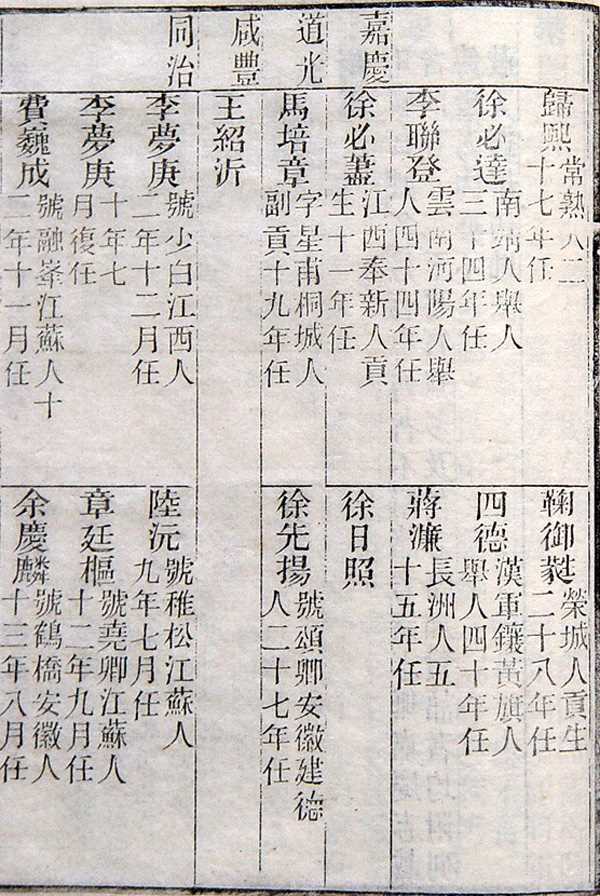 歸熙
常熟人二
十七年任
鞠御
榮城人貢生
二十八年任
徐必達
南靖人舉人
三十四年任
四德
漢軍鑲黃旗人
舉人四十年任
李聯登
雲南河陽人舉
人四十四年任
蔣濂
長洲人五
十五年任
嘉慶
徐必藎
江西奉新人貢
生十一年任
徐日照
道光
馬培章
字星甫桐城人
副貢十九年任
徐先揚
號頌卿安徽建德
人二十七年任
咸豐
王紹沂
同治
李夢庚
號少白江西人
二年十二月任
陸沅
號稚松江蘇人
九年七月任
李夢庚
十年七
月復任
章廷樞
號堯卿江蘇人
十二年九月任
費巍成
號融峯江蘇人十
二年十一月任
余慶麟
號鶴橋安徽人
十三年八月任